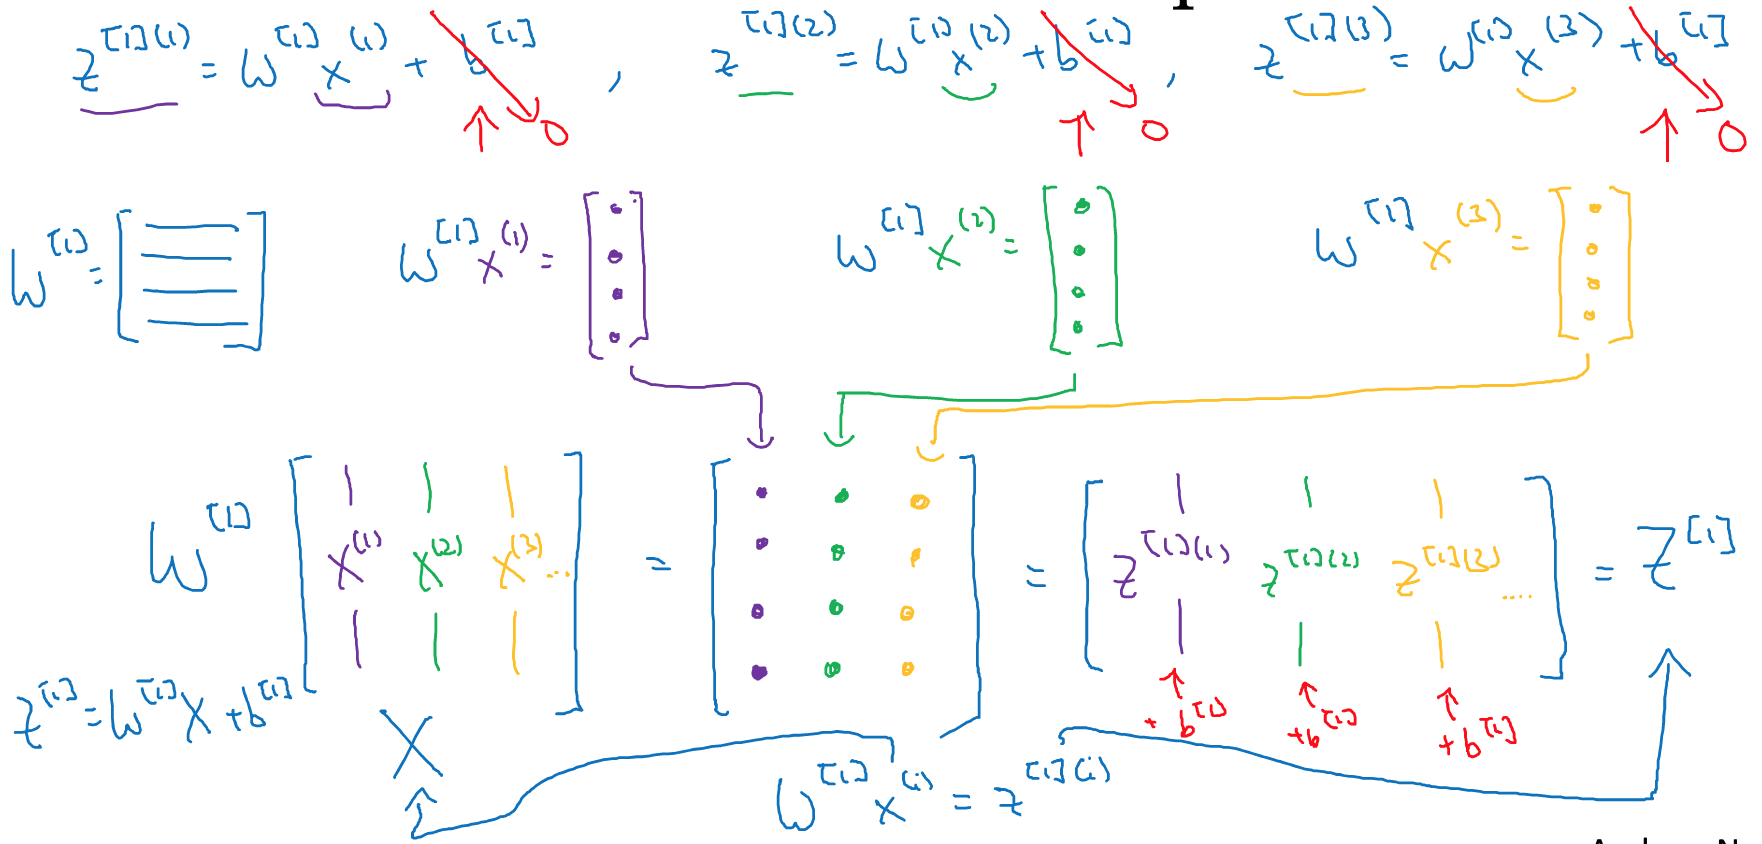 z^{[1](1)} = W^{[1]} x^{(1)} + b^{[1]} , z^{[1](2)} = W^{[1]} x^{(2)} + b^{[1]} , z^{[1](3)} = W^{[1]} x^{(3)} + b^{[1]}
0 0 0
W^{[1]} = [ ] W^{[1]} x^{(1)} = [ ] W^{[1]} x^{(2)} = [ ] W^{[1]} x^{(3)} = [ ]
W^{[1]} [ x^{(1)} x^{(2)} x^{(3)} ... ] = [ ] = [ z^{[1](1)} z^{[1](2)} z^{[1](3)} .... ] = Z^{[1]}
+ b^{[1]} + b^{[1]} + b^{[1]}
z^{[1]} = W^{[1]} X + b^{[1]}
X
W^{[1]} x^{(i)} = z^{[1](i)}